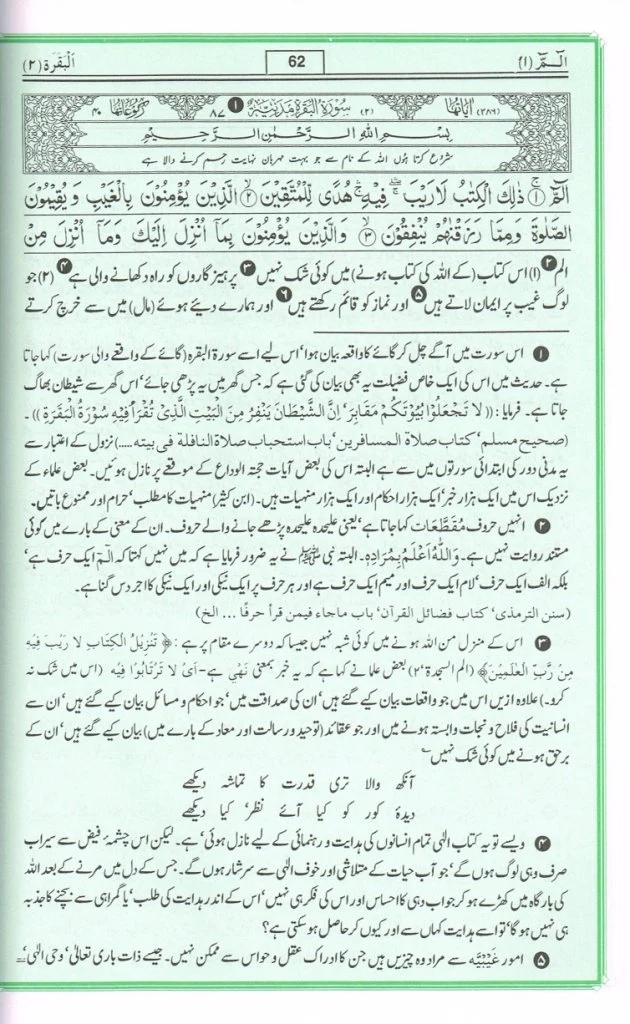 الٓمّٓ (۱)
62
اَلْبَقَرَة (۲)
(۲۸۶) اٰیَاتُہَا
(۲) سُوْرَۃُ الْبَقَرَۃِ مَدَنِیَّۃٌ ❶ ۸۷
رُکُوْعَاتُہَا ۴۰
بِسْمِ اللّٰهِ الرَّحْمٰنِ الرَّحِیْمِ
شروع کرتا ہوں اللہ کے نام سے جو بہت مہربان نہایت رحم کرنے والا ہے
الٓمّٓ ۚ﴿۱﴾ ذٰلِكَ الْكِتٰبُ لَا رَیْبَ ۛۖۚ فِیْهِ ۛۚ هُدًی لِّلْمُتَّقِیْنَ ۙ﴿۲﴾ الَّذِیْنَ یُؤْمِنُوْنَ بِالْغَیْبِ وَ یُقِیْمُوْنَ
الصَّلٰوةَ وَ مِمَّا رَزَقْنٰهُمْ یُنْفِقُوْنَ ۙ﴿۳﴾ وَالَّذِیْنَ یُؤْمِنُوْنَ بِمَاۤ اُنْزِلَ اِلَیْكَ وَمَاۤ اُنْزِلَ مِنْ
الم ❷ (۱) اس کتاب (کے اللہ کی کتاب ہونے) میں کوئی شک نہیں ❸ پرہیزگاروں کو راہ دکھانے والی ہے ❹ (۲) جو
لوگ غیب پر ایمان لاتے ہیں ❺ اور نماز کو قائم رکھتے ہیں ❻ اور ہمارے دیئے ہوئے (مال) میں سے خرچ کرتے
❶ اس سورت میں آگے چل کر گائے کا واقعہ بیان ہوا‘ اس لیے اسے سورۃ البقرہ (گائے کے واقعے والی سورت) کہا جاتا
ہے۔ حدیث میں اس کی ایک خاص فضیلت یہ بھی بیان کی گئی ہے کہ جس گھر میں یہ پڑھی جائے‘ اس گھر سے شیطان بھاگ
جاتا ہے۔ فرمایا: (( لَا تَجْعَلُوْا بُیُوْتَكُمْ مَقَابِرَ‘ اِنَّ الشَّیْطَانَ یَنْفِرُ مِنَ الْبَیْتِ الَّذِیْ تُقْرَأُ فِیْهِ سُوْرَةُ الْبَقَرَةِ ))۔
(صحیح مسلم‘ کتاب صلاة المسافرین‘ باب استحباب صلاة النافلة فی بیته.....) نزول کے اعتبار سے
یہ مدنی دور کی ابتدائی سورتوں میں سے ہے البتہ اس کی بعض آیات حجۃ الوداع کے موقعے پر نازل ہوئیں۔ بعض علماء کے
نزدیک اس میں ایک ہزار خبر‘ ایک ہزار احکام اور ایک ہزار منہیات ہیں۔ (ابن کثیر) منہیات کا مطلب‘ حرام اور ممنوع باتیں۔
❷ انہیں حروف مُقَطَّعَات کہا جاتا ہے‘ یعنی علیحدہ علیحدہ پڑھے جانے والے حروف۔ ان کے معنی کے بارے میں کوئی
مستند روایت نہیں ہے۔ وَاللّٰهُ اَعْلَمُ بِمُرَادِهٖ۔ البتہ نبی ﷺ نے یہ ضرور فرمایا ہے کہ میں نہیں کہتا کہ الٓمّٓ ایک حرف ہے‘
بلکہ الف ایک حرف‘ لام ایک حرف اور میم ایک حرف ہے اور ہر حرف پر ایک نیکی اور ایک نیکی کا اجر دس گنا ہے۔
(سنن الترمذی‘ کتاب فضائل القرآن‘ باب ماجاء فیمن قرأ حرفًا ... الخ)
❸ اس کے منزل من اللہ ہونے میں کوئی شبہ نہیں جیسا کہ دوسرے مقام پر ہے: ﴿ تَنْزِیْلُ الْكِتَابِ لَا رَیْبَ فِیْهِ
مِنْ رَّبِّ الْعٰلَمِیْنَ﴾ (الم السجدۃ‘ ۲) بعض علما نے کہا ہے کہ یہ خبر بمعنی نَهْی ہے۔ اَیْ لَا تَرْتَابُوْا فِیْهِ (اس میں شک نہ
کرو۔) علاوہ ازیں اس میں جو واقعات بیان کیے گئے ہیں‘ ان کی صداقت میں‘ جو احکام و مسائل بیان کیے گئے ہیں‘ ان سے
انسانیت کی فلاح و نجات وابستہ ہونے میں اور جو عقائد (توحید و رسالت اور معاد کے بارے میں) بیان کیے گئے ہیں‘ ان کے
برحق ہونے میں کوئی شک نہیں ؎
آنکھ والا تری قدرت کا تماشہ دیکھے
دیدۂ کور کو کیا آئے نظر‘ کیا دیکھے
❹ ویسے تو یہ کتاب الٰہی تمام انسانوں کی ہدایت و رہنمائی کے لیے نازل ہوئی‘ ہے۔ لیکن اس چشمۂ فیض سے سیراب
صرف وہی لوگ ہوں گے‘ جو آب حیات کے متلاشی اور خوف الٰہی سے سرشار ہوں گے۔ جس کے دل میں مرنے کے بعد اللہ
کی بارگاہ میں کھڑے ہو کر جواب دہی کا احساس اور اس کی فکر ہی نہیں‘ اس کے اندر ہدایت کی طلب‘ یا گمراہی سے بچنے کا جذبہ
ہی نہیں ہو گا‘ تو اسے ہدایت کہاں سے اور کیوں کر حاصل ہو سکتی ہے؟
❺ امور غَیْبِیَّه سے مراد وہ چیزیں ہیں جن کا ادراک عقل و حواس سے ممکن نہیں۔ جیسے ذات باری تعالیٰ‘ وحی الٰہی‘